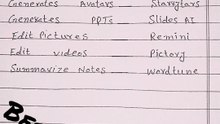 Generates Avatars Starrytars
Generates PPTs Slides AI
Edit Pictures Remini
Edit videos Pictory
Summarize Notes Wordtune
BE